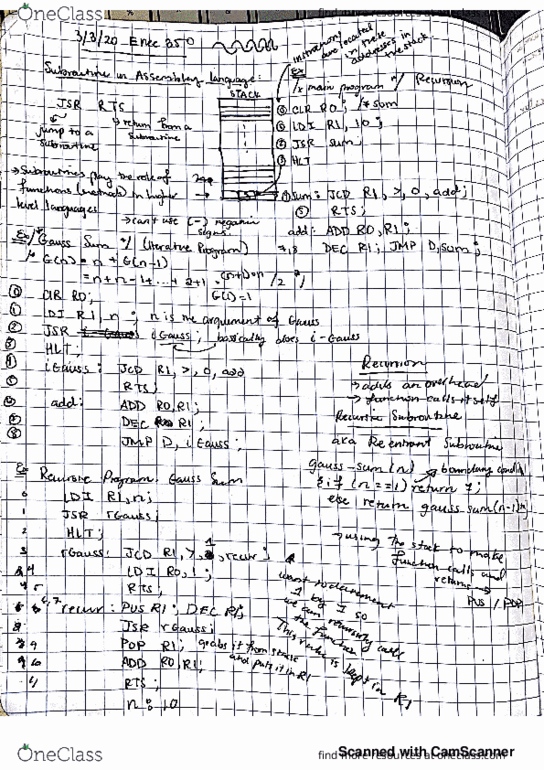 OneClass
3/3/20 Enee 350
instructions are located in these addresses in the stack
Subroutine in Assembly language:
STACK
JSR RTS
jump to a subroutine
return from a subroutine
→ Subroutines play the role of functions (methods) in higher level languages
→ can't use (-) negative signs
Ex
/* main program w/ Recursion
CLR R0; /* sum
LDI R1, 10;
JSR sum;
HLT
sum: JCD R1, >, 0, add;
RTS;
add: ADD R0, R1;
DEC R1; JMP D, sum;
Ex/ Gauss Sum (Iterative Program)
/* G(n) = n + G(n-1)
= n + n-1 + ... + 2 + 1 = (n+1)·n /2 */
G(1) = 1
0 CLR R0;
1 LDI R1, n; n is the argument of Gauss
2 JSR iGauss; basically does i-Gauss
3 HLT;
4 iGauss: JCD R1, >, 0, add
5 RTS;
6 add: ADD R0, R1;
7 DEC R1;
8 JMP D, iGauss;
Recursion
→ adds an overhead
→ function calls itself
Recursive Subroutine
aka Reentrant Subroutine
gauss-sum(n) → boundary condition
if (n==1) return 1;
else return gauss-sum(n-1)
→ using the stack to make function calls and returns →
PUS / POP
Ex Recursive Program: Gauss Sum
0 LDI R1, n;
1 JSR rGauss;
2 HLT;
3 rGauss: JCD R1, >, 1, recur;
4 LDI R0, 1;
5 RTS;
6,7 recur: PUS R1; DEC R1;
8 JSR rGauss;
9 POP R1; grabs it from stack and puts it in R1
ADD R0, R1;
RTS;
n = 10
want to decrement 1 by 1 so we can recursively call the function
This value is kept in R1
OneClass
Scanned with CamScanner